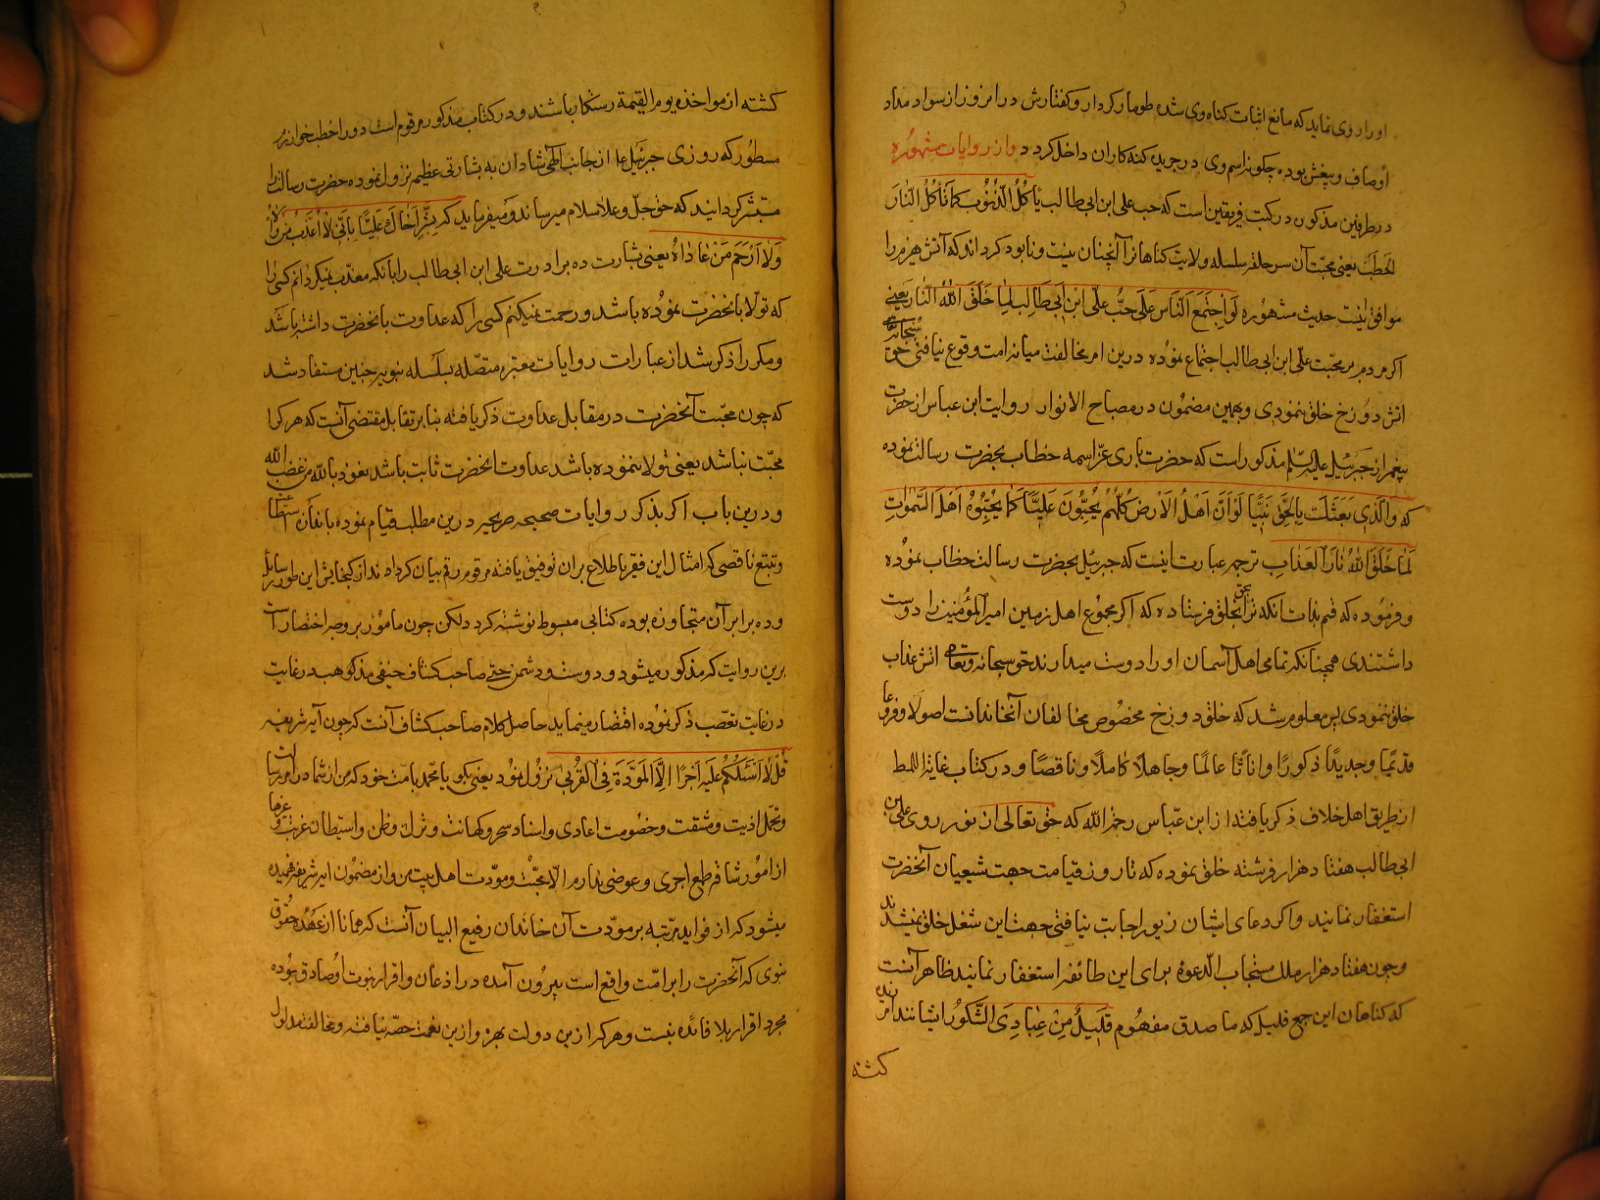 او را روی نماید که مانع اثبات کناه وی شده طومار کردار و کفتارش در انروز از سواد مداد
اوصاف و پیغش بوده چکونه اسم وی در جریده کنه کاران داخل کردد و از روایات مشهوره
در طریقین مذکور در کتب فریقین است که حب علی ابن ابی طالب یأکل الذنوب کما تأکل النار
الحطب یعنی محبت آن سر حلقه سلسله ولایت کناهانرا آنچنان نیست و نابود کرداند که آتش هیزم را
موافق اینست حدیث مشهوره لو اجتمع الناس علی حب علی ابن ابی طالب لما خلق الله النار یعنی
اکر مردم بر محبت علی ابن ابی طالب اجتماع نموده درین امر مخالفت میانه امت وقوع نیافتی حق سبحانه
اتش دوزخ خلق ننمودی و بهمین مضمون در مصباح الانوار روایت ابن عباس از حضرت
پیغمبر از جبرئیل علیه السلم مذکور است که حضرت باری عز اسمه خطاب بحضرت رسالت نموده
که والذی بعثک بالحق نبیا لو ان اهل الارض کلهم یحبون علیا کما یحبوه اهل السموات
لما خلق الله نار العذاب ترجمه عبارت اینست که جبرئیل بحضرت رسالت خطاب نموده
و فرموده که قسم بذات انکه ترا بحق بخلق فرستاده که اکر مجموع اهل زمین امیر المؤمنین را دوست
داشتندی همچنانکه تمامی اهل آسمان او را دوست میدارند حق سبحانه و تعالی اتش عذاب
خلق ننمودی پس معلوم شد که خلق دوزخ مخصوص مخالفان آنخاندانست اصولا و فروعا
قدیما و جدیدا ذکورا و اناثا عالما و جاهلا کاملا و ناقصا و در کتاب غایة المط
از طریق اهل خلاف ذکر یافته از ابن عباس رحمه الله که حق تعالی از نور روی علی بن
ابی طالب هفتاد هزار فرشته خلق نموده که تا روز قیامت جهت شیعیان آنحضرت
استغفار نمایند و اکر دعای ایشان زیور اجابت نیافتی جهت این شغل خلق نمیشدند
و چون هفتاد هزار ملک مستجاب الدعوة برای این طائفه استغفار نمایند ظاهر آنست
که کناهان این جمع قلیل که ما صدق مفهوم قلیل من عبادی الشکور ایشانند امرزیده
کشته
کشته از مواخذه یوم القیمة رستکار باشند و در کتاب مذکور مرقوم است در اخطب خوارزم
مسطور که روزی جبرئیل ع‍ از جانب الهی شادان به بشارتی عظیم نزول نموده حضرت رسالت را
مبشر کردانید که حق جل و علا سلام میرساند و میفرماید که بشر اخاک علیا بانی لا اعذب من تولاه
ولا ارحم من عاداه یعنی بشارت ده برادرت علی ابن ابی طالب را بانکه معذب نمیکردانم کسی را
که تولا بانحضرت نموده باشد و رحمت نمیکنم کسی را که عداوت بانحضرت داشته باشد
و مکررا ذکر شد از عبارات روایات معتبره متصله بسلسله نبویه چنین مستفاد شد
که چون محبت آنحضرت در مقابل عداوت ذکر یافته بنابر تقابل مقتضی آنست که هر کرا
محبت نباشد یعنی تولا ننموده باشد عداوت انحضرت ثابت باشد نعوذ بالله من غضب الله
و درین باب اکر بذکر روایات صحیحه صریحه درین مطلب قیام نموده باندازه استطاعت
و تتبع ناقصی که امثال این فقیر باطلاع بران توفیق یافته مرقوم رقم بیان کرداند از کنجایش این طور رسایل
و ده برابر آن متجاوز بوده کتابی مبسوط نوشته کردد لکن چون مامور بر وجه اختصار است
برین روایت که مذکور میشود و دوست و دشمن حتی صاحب کشاف حنفی مذهب در غایت
در غایت تعصب ذکر نموده اقتصار مینماید حاصل کلام صاحب کشاف آنست که چون آیه شریفه
قل لا اسئلکم علیه اجرا الا المودة فی القربی نزول نمود یعنی بکو یا محمد بامت خود که من از شما در امر رسالت
و تحمل اذیت و مشقت و خصومت اعادی و اسناد سحر و کهانت و ترک وطن و استیطان غربت و غیرها
از امور شاقه طمع اجری و عوضی ندارم الا محبت و مودت اهل بیت من و از مضمون ایه شریفه فهمیده
میشود که از فواید مرتبه بر مودت آن خاندان رفیع البیان آنست که همانا از عهده حقوق
نبوی که آنحضرت را بر امت واقع است بیرون آمده در اذعان و اقرار نبوت او صادق بوده
مجرد اقرار بلا فائده نیست و هر که از این دولت بهره و از ین نعمت حصه نیافته و مخالفت مدلول